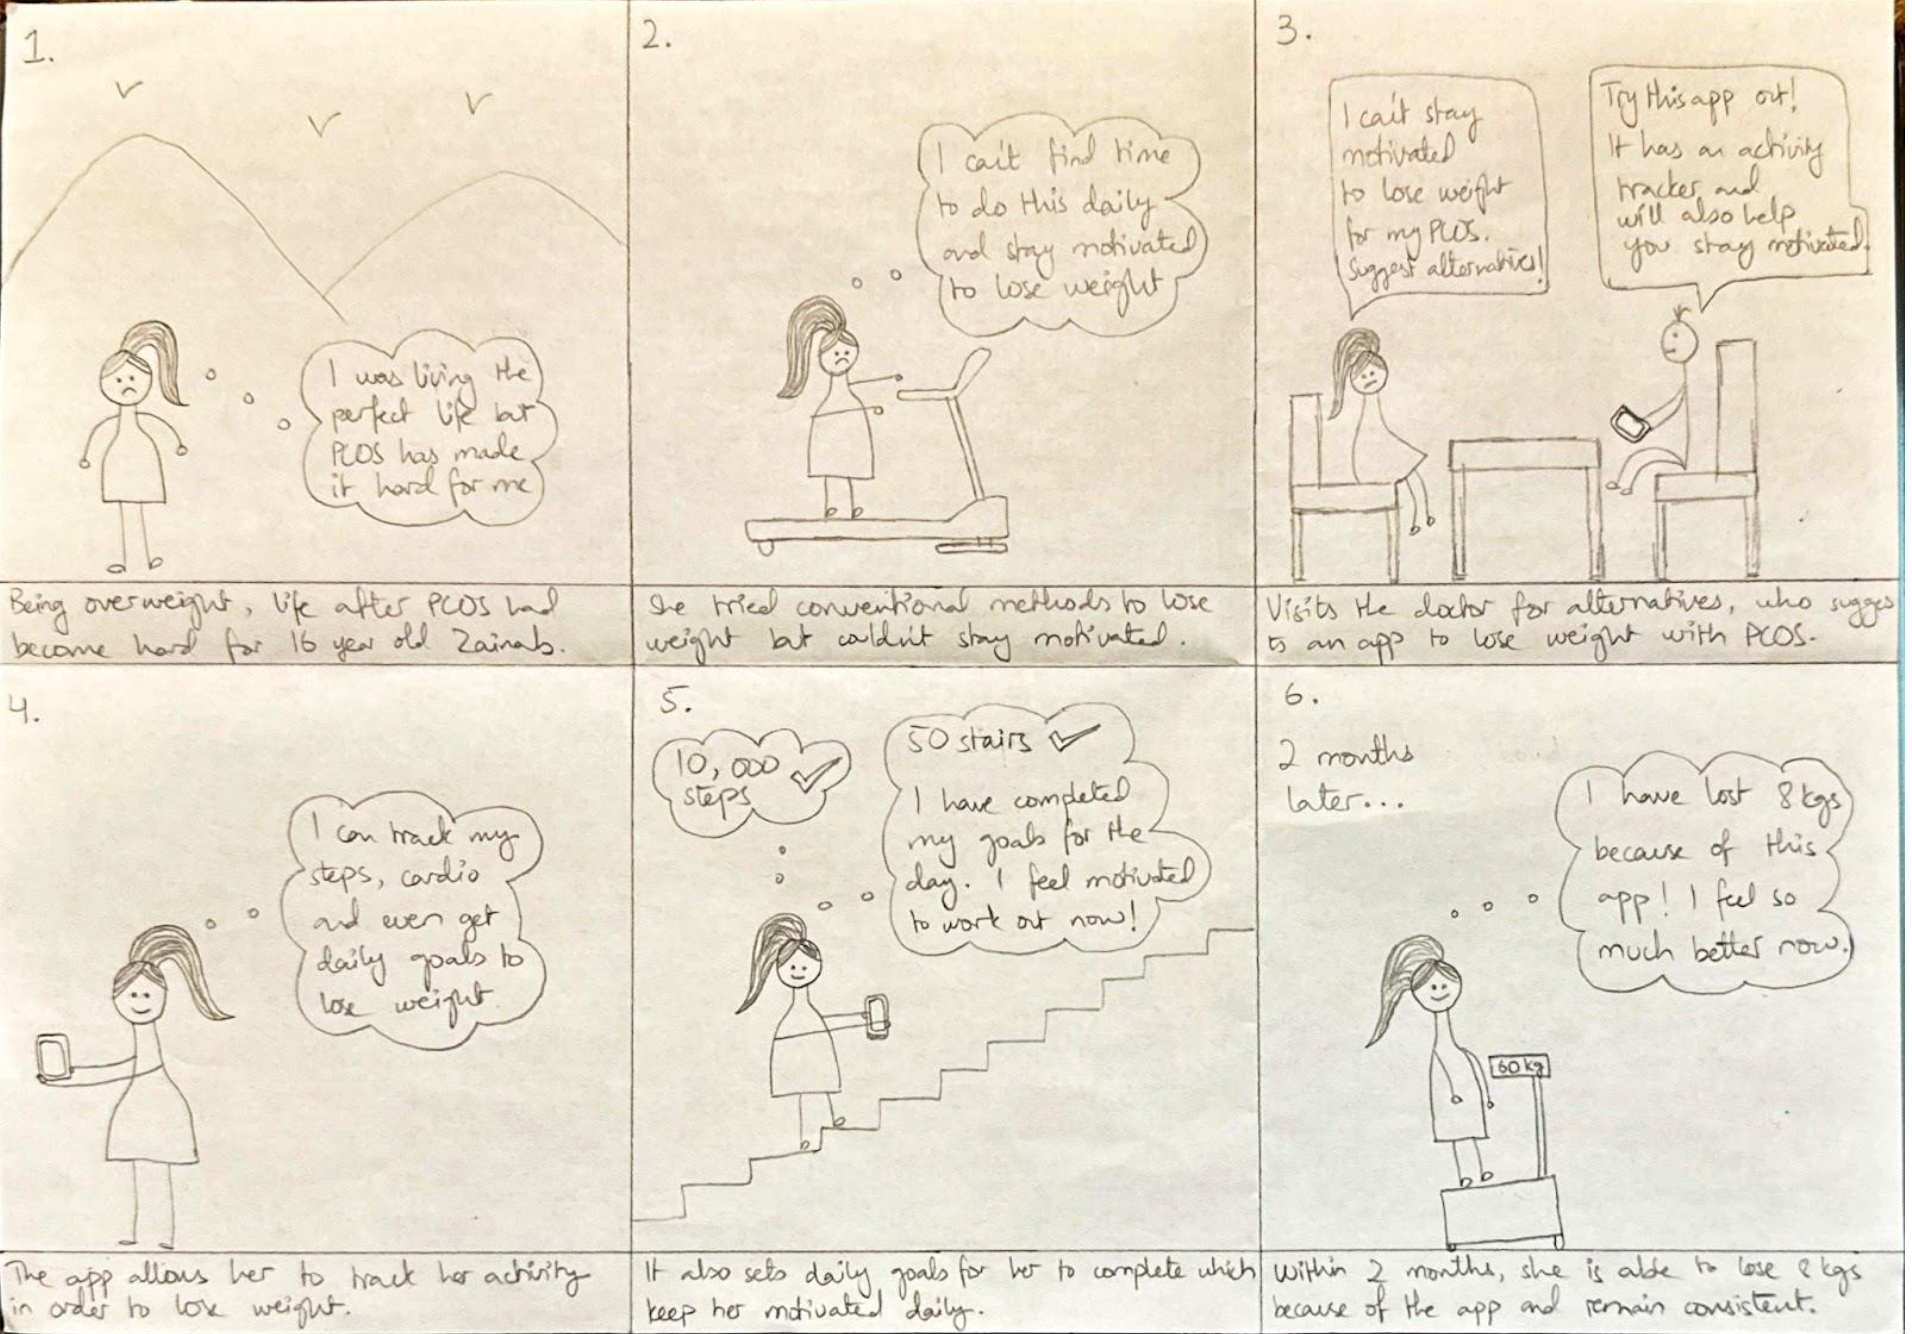 1.
I was living the
perfect life but
PCOS has made
it hard for me
Being overweight, life after PCOS had
become hard for 16 year old Zainab.
2.
I can't find time
to do this daily
and stay motivated
to lose weight
She tried conventional methods to lose
weight but couldn't stay motivated.
3.
I can't stay
motivated
to lose weight
for my PCOS.
Suggest alternatives!
Try this app out!
It has an activity
tracker and
will also help
you stay motivated.
Visits the doctor for alternatives, who sugges
ts an app to lose weight with PCOS.
4.
I can track my
steps, cardio
and even get
daily goals to
lose weight.
The app allows her to track her activity
in order to lose weight.
5.
10,000
steps
50 stairs
I have completed
my goals for the
day. I feel motivated
to work out now!
It also sets daily goals for her to complete which
keep her motivated daily.
6.
2 months
later...
I have lost 8 kgs
because of this
app! I feel so
much better now.
60 kg
Within 2 months, she is able to lose 8 kgs
because of the app and remain consistent.